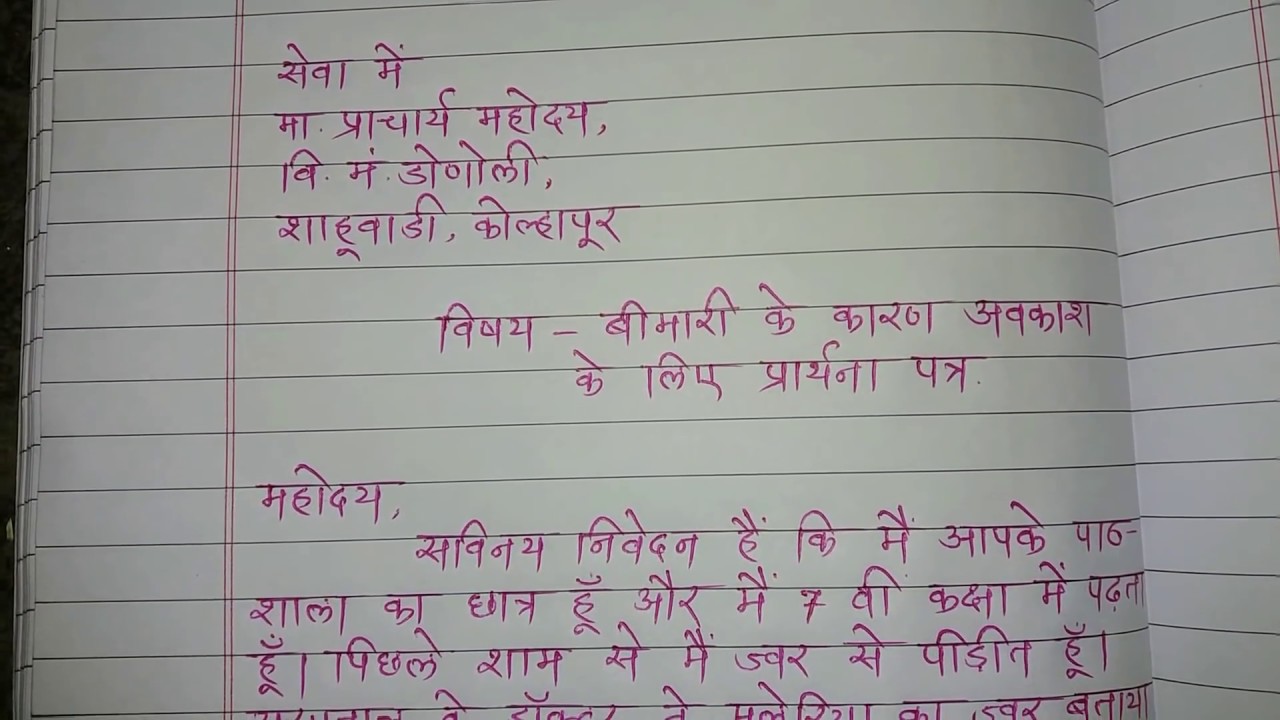 सेवा में
मा. प्राचार्य महोदय,
वि. मं. डोणोली,
शाहूवाडी, कोल्हापूर
विषय - बीमारी के कारण अवकाश
के लिए प्रार्थना पत्र.
महोदय,
सविनय निवेदन हैं कि मैं आपके पाठ-
शाला का छात्र हूँ और मैं 7 वीं कक्षा में पढ़ता
हूँ। पिछले शाम से मैं ज्वर से पीड़ीत हूँ।
के डॉक्टर ने मलेरिया का ज्वर बताया